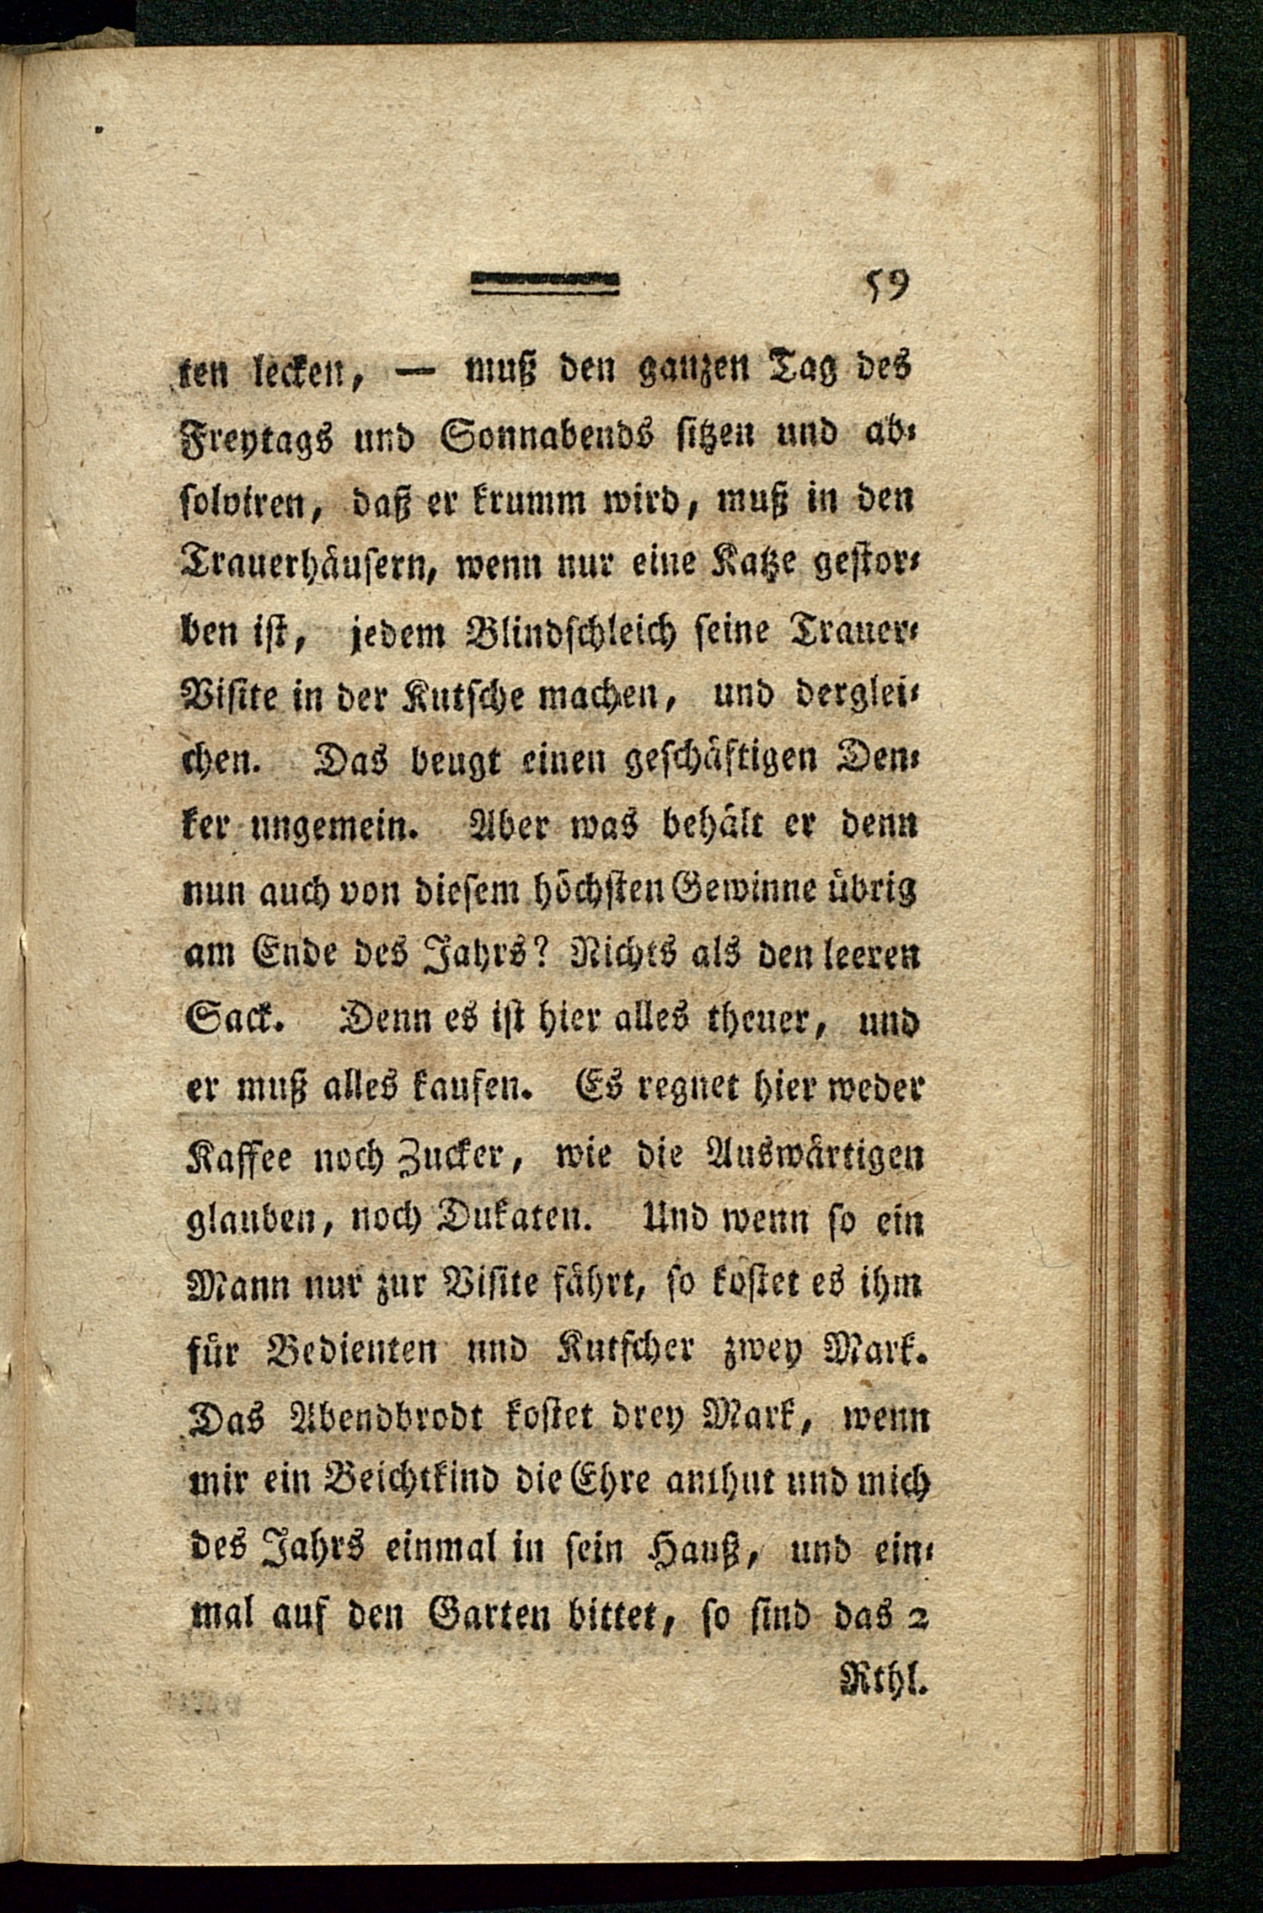 59
ten lecken, — muß den ganzen Tag des
Freytags und Sonnabends sitzen und ab⸗
solviren, daß er krumm wird, muß in den
Trauerhäusern, wenn nur eine Katze gestor⸗
ben ist, jedem Blindschleich seine Trauer⸗
Visite in der Kutsche machen, und derglei⸗
chen. Das beugt einen geschäftigen Den⸗
ker ungemein. Aber was behält er denn
nun auch von diesem höchsten Gewinne übrig
am Ende des Jahrs? Nichts als den leeren
Sack. Denn es ist hier alles theuer, und
er muß alles kaufen. Es regnet hier weder
Kaffee noch Zucker, wie die Auswärtigen
glauben, noch Dukaten. Und wenn so ein
Mann nur zur Visite fährt, so kostet es ihm
für Bedienten und Kutscher zwey Mark.
Das Abendbrodt kostet drey Mark, wenn
mir ein Beichtkind die Ehre anthut und mich
des Jahrs einmal in sein Hauß, und ein⸗
mal auf den Garten bittet, so sind das 2
Rthl.